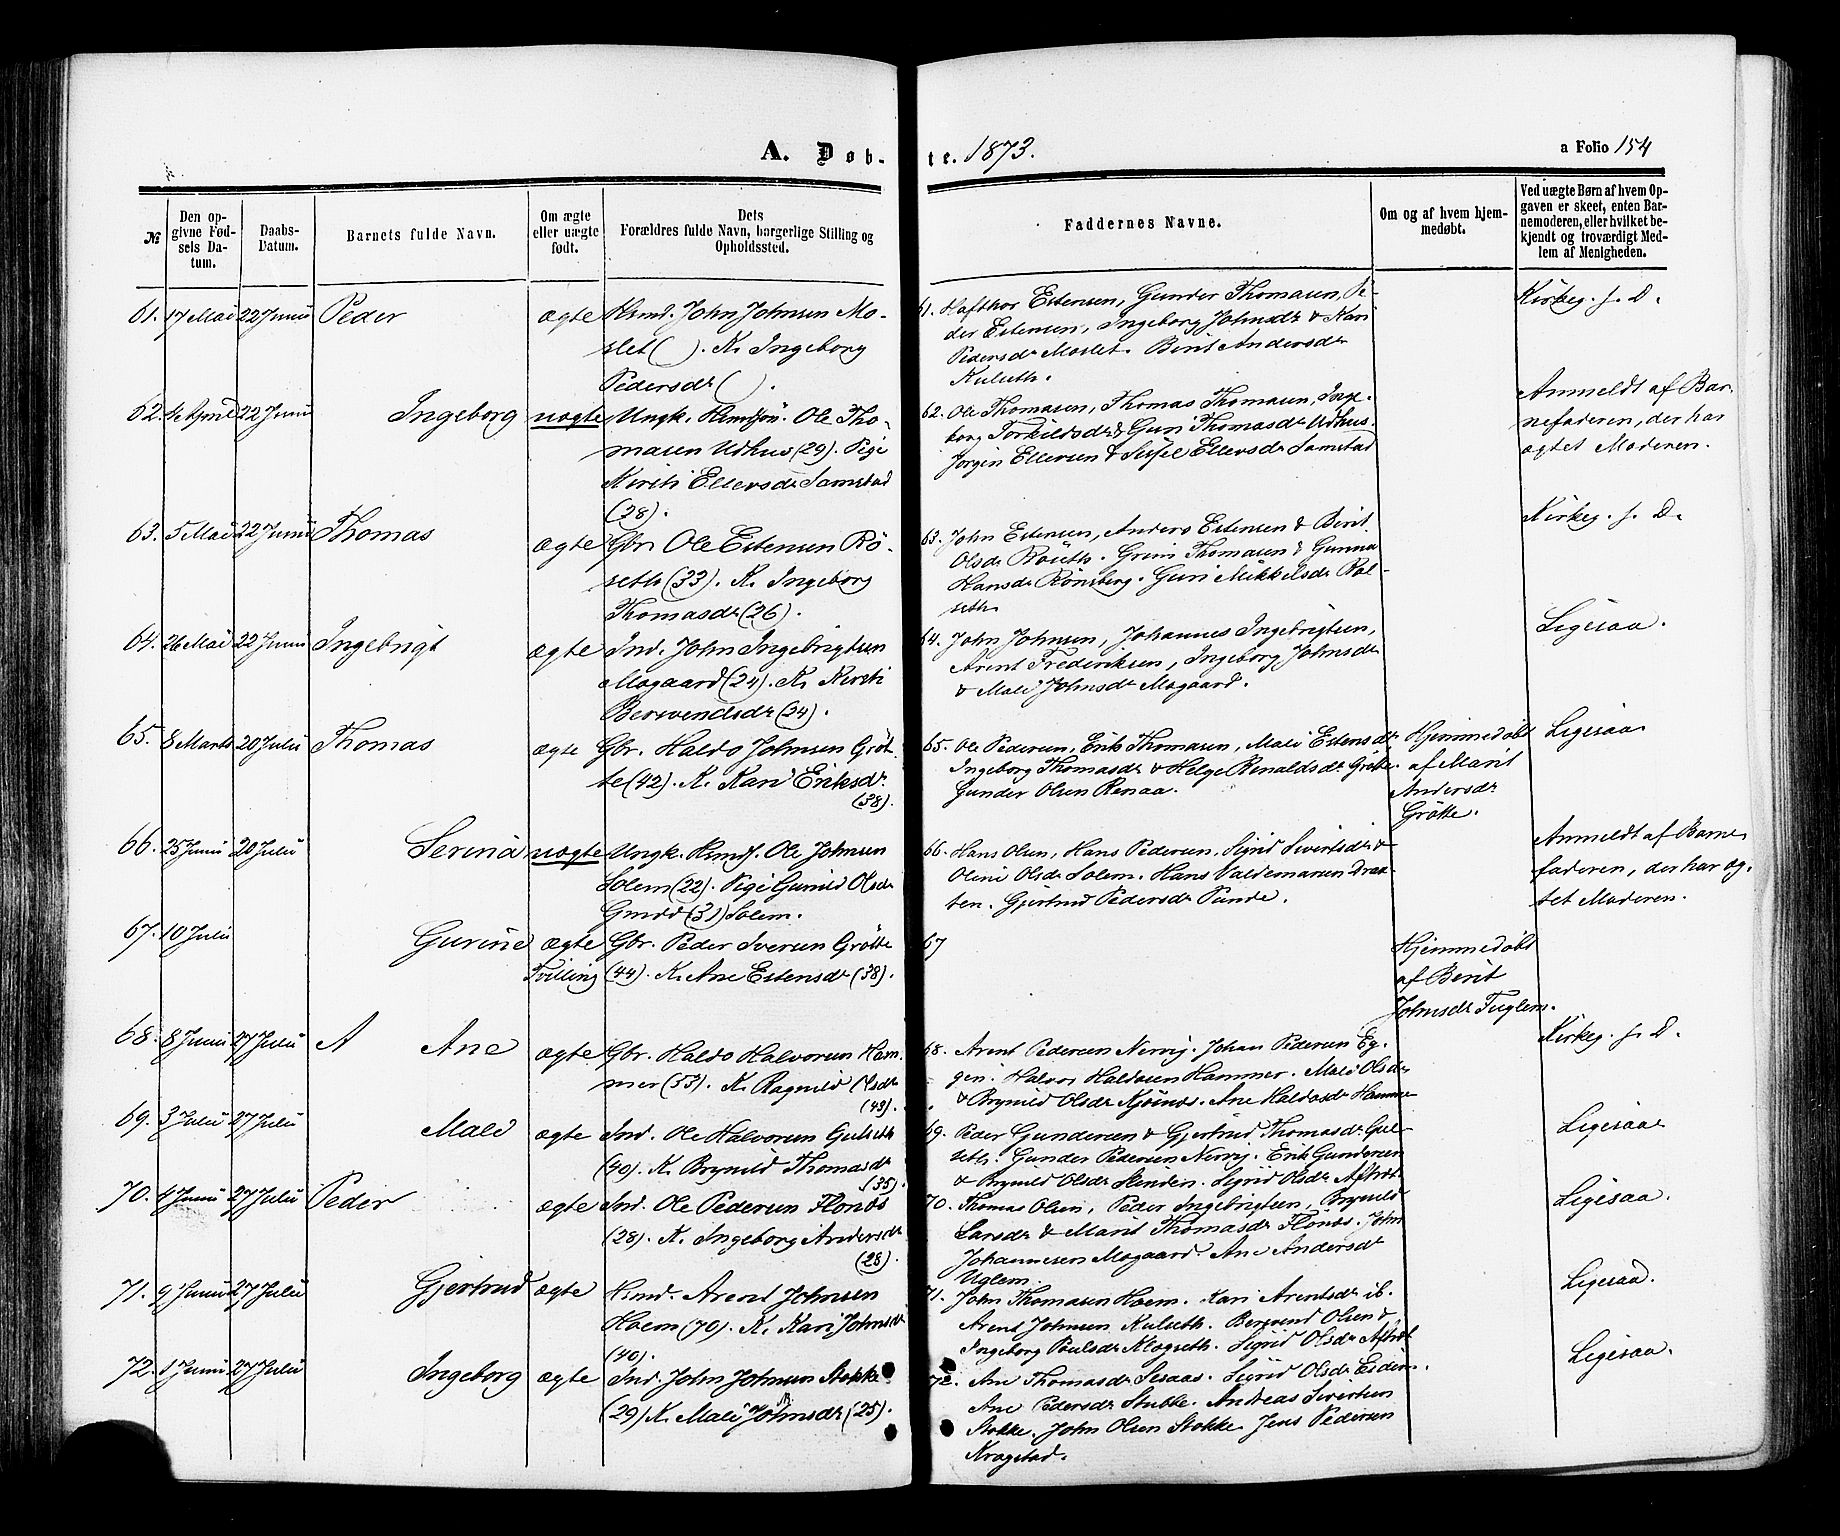 A. Døb-
te. 1873.
a Folio 154
№
Den op-
givne Fød-
sels Da-
tum.
Daabs-
Datum.
Barnets fulde Navn.
Om ægte
eller uægte
født.
Dets
Forældres fulde Navn, borgerlige Stilling og
Opholdssted.
Faddernes Navne.
Om og af hvem hjem-
medøbt.
Ved uægte Børn af hvem Op-
gaven er skeet, enten Bar-
nemoderen, eller hvilket be-
kjendt og troværdigt Med-
lem af Menigheden.
61. 17 Mai 22 Juni Peder ægte Hsmd. John Johnsen Mo-
slet ( ). K. Ingeborg
Pedersdr ( ).
61. Hafthor Estensen, Gunder Thomasen, Pe-
der Estensen, Ingeborg Johnsdr & Kari
Pedersdr Moslet. Berit Andersdr
Kulseth.
Kirkeg. s. D.
62. April 22 Juni Ingeborg uægte Ungk. Hsmdsøn. Ole Tho-
masen Udhus (29). Pige
Kirsti Ellersdr Samstad
(28).
62. Ole Thomasen, Thomas Thomasen, Inge-
borg Torkildsdr & Guri Thomasdr Udhus.
Jørgin Ellersen & Sissel Ellersdr Samstad
Anmeldt af Bar-
nefaderen, der har
ægtet Moderen.
63. 5 Mai 22 Juni Thomas ægte Gbr. Ole Estensen Rø-
seth (33). K. Ingeborg
Thomasdr (26).
63. John Estensen, Anders Estensen & Berit
Olsdr Røseth. Grim Thomasen & Gunna
Hansdr Rønsberg. Guri Mikkelsdr Rol-
seth
Kirkeg. s. D.
64. 26 Mai 22 Juni Ingebrigt ægte Ind. John Ingebrigtsen
Mogaard (24). K. Kirsti
Berevendsdr (24).
64. John Johnsen, Johannes Ingebrigtsen,
Arent Frederiksen, Ingeborg Johnsdr
& Mali Johnsdr Mogaard.
Ligesaa.
65. 8 Marts 20 Juli Thomas ægte Gbr. Haldo Johnsen Grøt-
te (42). K. Kari Eriksdr
(38).
65. Ole Pedersen, Erik Thomasen, Mali Estensdr
Ingeborg Thomasdr & Helge Renaldsdr Grøtte.
Gunder Olsen Renaa.
Hjemmedøbt
af Marit
Andersdr
Grøtte.
Ligesaa
66. 25 Juni 20 Juli Serina uægte Ungk. Hsmdf. Ole Johnsen
Solem (22). Pige Gunild Olsdr
(31) Solem.
66. Hans Olsen, Hans Pedersen. Sigrid Sivertsdr &
Oline Olsdr Solem. Hans Valdemarsen Drax-
ten. Gjertrud Pedersdr Pande.
Anmeldt af Barne
faderen, der har æg-
tet Moderen.
67. 10 Juli Gurine ægte
Tvilling
Gbr. Peder Iversen Grøtte
(44). K. Ane Estensdr (38).
67
Hjemmedøbt
af Berit
Johnsdr Fuglem.
68. 8 Juni 27 Juli A Ane ægte Gbr. Haldo Halvorsen Ham-
mer (53). K. Ragnild Olsdr
(43).
68. Arent Pedersen Nervig. Johan Pedersen Eg-
gen. Halvor Haldosen Hammer. Mali Olsdr
& Brynild Olsdr Kjøsnes. Ane Haldosdr Hammer
Kirkeg. s. D.
69. 3 Juli 27 Juli Mali ægte Ind. Ole Halvorsen Gulseth
(40). K. Brynild Thomasdr
(35).
69. Peder Gundersen & Gjertrud Thomasdr Gul-
seth. Gunder Pedersen Nervig. Erik Gundersen
& Brynild Olsdr Slinden. Sigrid Olsdr Aftret
Ligesaa
70. 4 Juni 27 Juli Peder ægte Ind. Ole Pedersen Flønes
(28). K. Ingeborg Andersdr
(28).
70. Thomas Olsen, Peder Ingebrigtsen, Brynild
Larsdr & Marit Thomasdr Flønes. John
Johannesen Mogaard. Ane Andersdr
Uglem.
Ligesaa.
71. 9 Juni 27 Juli Gjertrud ægte Hsmd. Arent Johnsen
Hoem (70). K. Kari Johnsdr
(40).
71. John Thomasen Hoem. Kari Arentsdr ib.
Arent Johnsen Kulseth. Berevend Olsen &
Ingeborg Poulsdr Klegseth. Sigrid Olsdr Aftret
Ligesaa.
72. 1 Juni 27 Juli Ingeborg ægte Ind. John Johnsen Stokke
(29) K. Mali Johnsdr (25).
72. Ane Thomasdr Sesaas. Sigrid Olsdr
Ane Pedersdr Stubbe. Andreas Sivertsen
Stokke. John Olsen Stokke. Jens Pedersen
Kragstad.
Ligesaa.